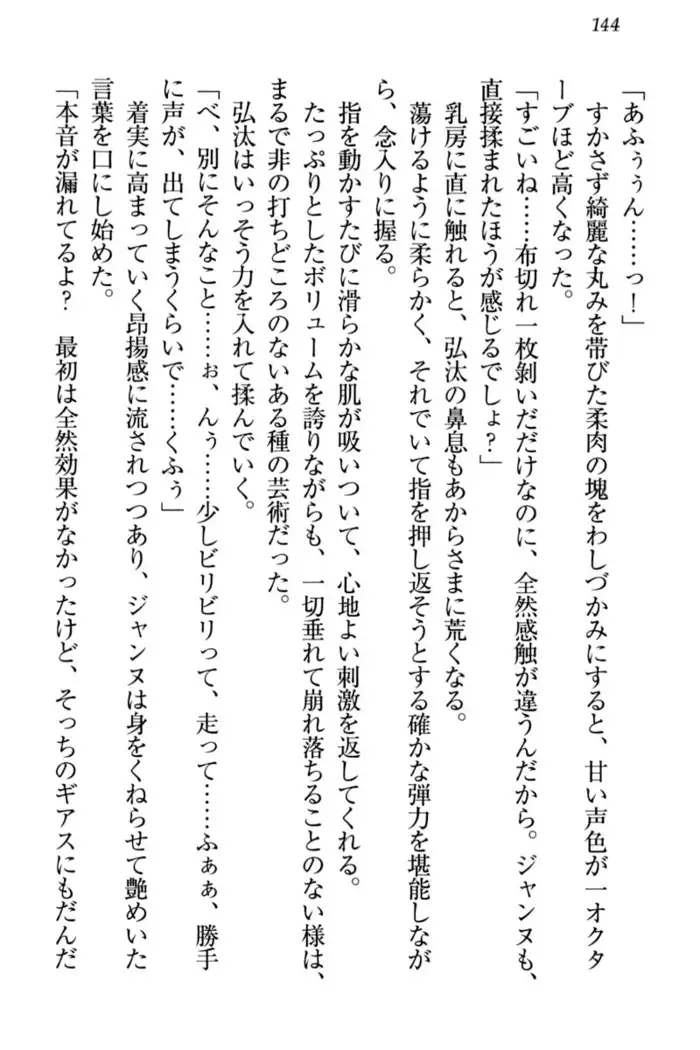 144
「あふぅぅん……っ！」
　すかさず綺麗な丸みを帯びた柔肉の塊をわしづかみにすると、甘い声色が一オクタ
ーブほど高くなった。
「すごいね……布切れ一枚剝いだだけなのに、全然感触が違うんだから。ジャンヌも、
直接揉まれたほうが感じるでしょ？」
　乳房に直に触れると、弘汰の鼻息もあからさまに荒くなる。
　蕩けるように柔らかく、それでいて指を押し返そうとする確かな弾力を堪能しなが
ら、念入りに握る。
　指を動かすたびに滑らかな肌が吸いついて、心地よい刺激を返してくれる。
　たっぷりとしたボリュームを誇りながらも、一切垂れて崩れ落ちることのない様は、
まるで非の打ちどころのないある種の芸術だった。
　弘汰はいっそう力を入れて揉んでいく。
「べ、別にそんなこと……ぉ、んぅ……少しビリビリって、走って……ふぁぁ、勝手
に声が、出てしまうくらいで……くふぅ」
　着実に高まっていく昂揚感に流されつつあり、ジャンヌは身をくねらせて艶めいた
言葉を口にし始めた。
「本音が漏れてるよ？　最初は全然効果がなかったけど、そっちのギアスにもだんだ